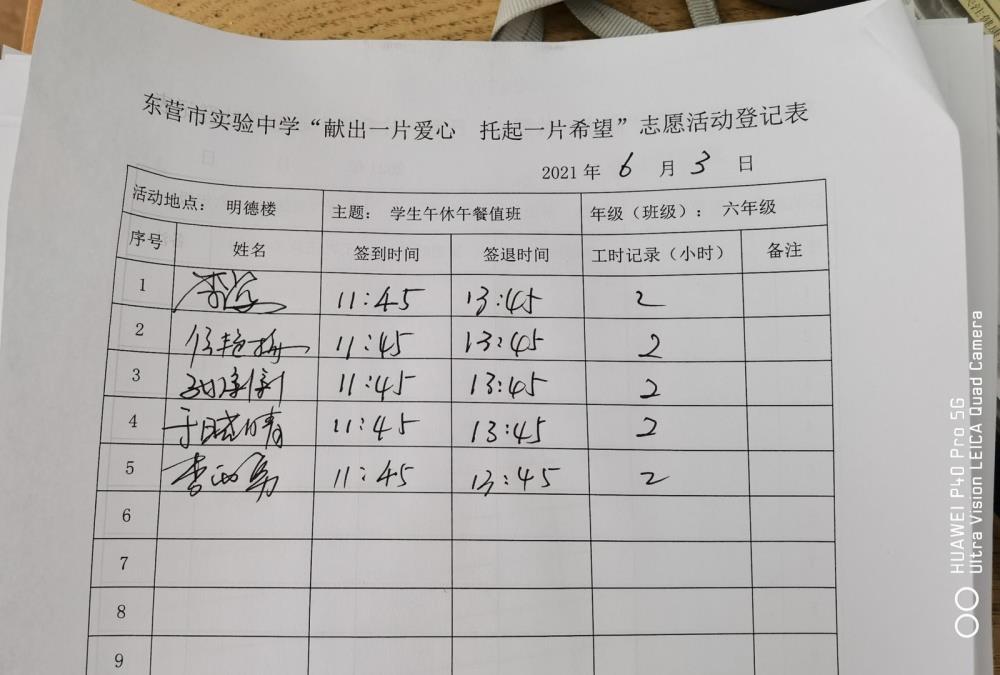 东营市实验中学“献出一片爱心 托起一片希望”志愿活动登记表
2021 年 6 月 3 日
活动地点： 明德楼 主题： 学生午休午餐值班 年级（班级）： 六年级
序号 姓名 签到时间 签退时间 工时记录（小时） 备注
1 11:45 13:45 2
2 侯艳梅 11:45 13:45 2
3 11:45 13:45 2
4 于晓晴 11:45 13:45 2
5 11:45 13:45 2
6
7
8
9
HUAWEI P40 Pro 5G
Ultra Vision LEICA Quad Camera